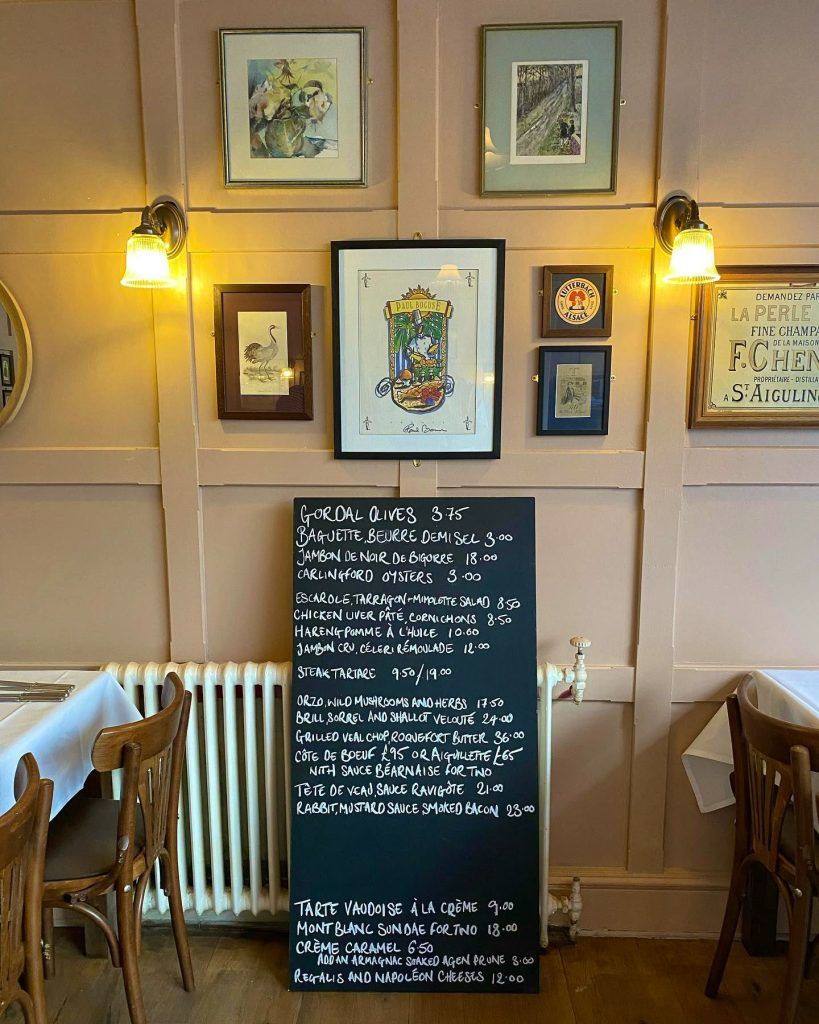 PAUL BOCUSE
LUTTERBACH
ALSACE
DEMANDEZ PAR
LA PERLE
FINE CHAMPA
DE LA MAISON
F. CHEN
PROPRIÉTAIRE - DISTILLA
A ST. AIGULIN
GORDAL OLIVES 3.75
BAGUETTE, BEURRE DEMI SEL 3.00
JAMBON DE NOIR DE BIGORRE 18.00
CARLINGFORD OYSTERS 3.00
ESCAROLE, TARRAGON-MIMOLETTE SALAD 8.50
CHICKEN LIVER PÂTÉ, CORNICHONS 8.50
HARENG POMME À L'HUILE 10.00
JAMBON CRU, CÉLERI RÉMOULADE 12.00
STEAK TARTARE 9.50/19.00
ORZO, WILD MUSHROOMS AND HERBS 17.50
BRILL SORREL AND SHALLOT VELOUTÉ 24.00
GRILLED VEAL CHOP, ROQUEFORT BUTTER 36.00
CÔTE DE BOEUF £95 OR AIGUILLETTE £65
WITH SAUCE BÉARNAISE FOR TWO
TÊTE DE VEAU, SAUCE RAVIGÔTE 21.00
RABBIT, MUSTARD SAUCE SMOKED BACON 23.00
TARTE VAUDOISE À LA CRÈME 9.00
MONT BLANC SUNDAE FOR TWO 18.00
CRÈME CARAMEL 6.50
ADD AN ARMAGNAC SOAKED AGEN PRUNE 8.00
REGALIS AND NAPOLÉON CHEESES 12.00